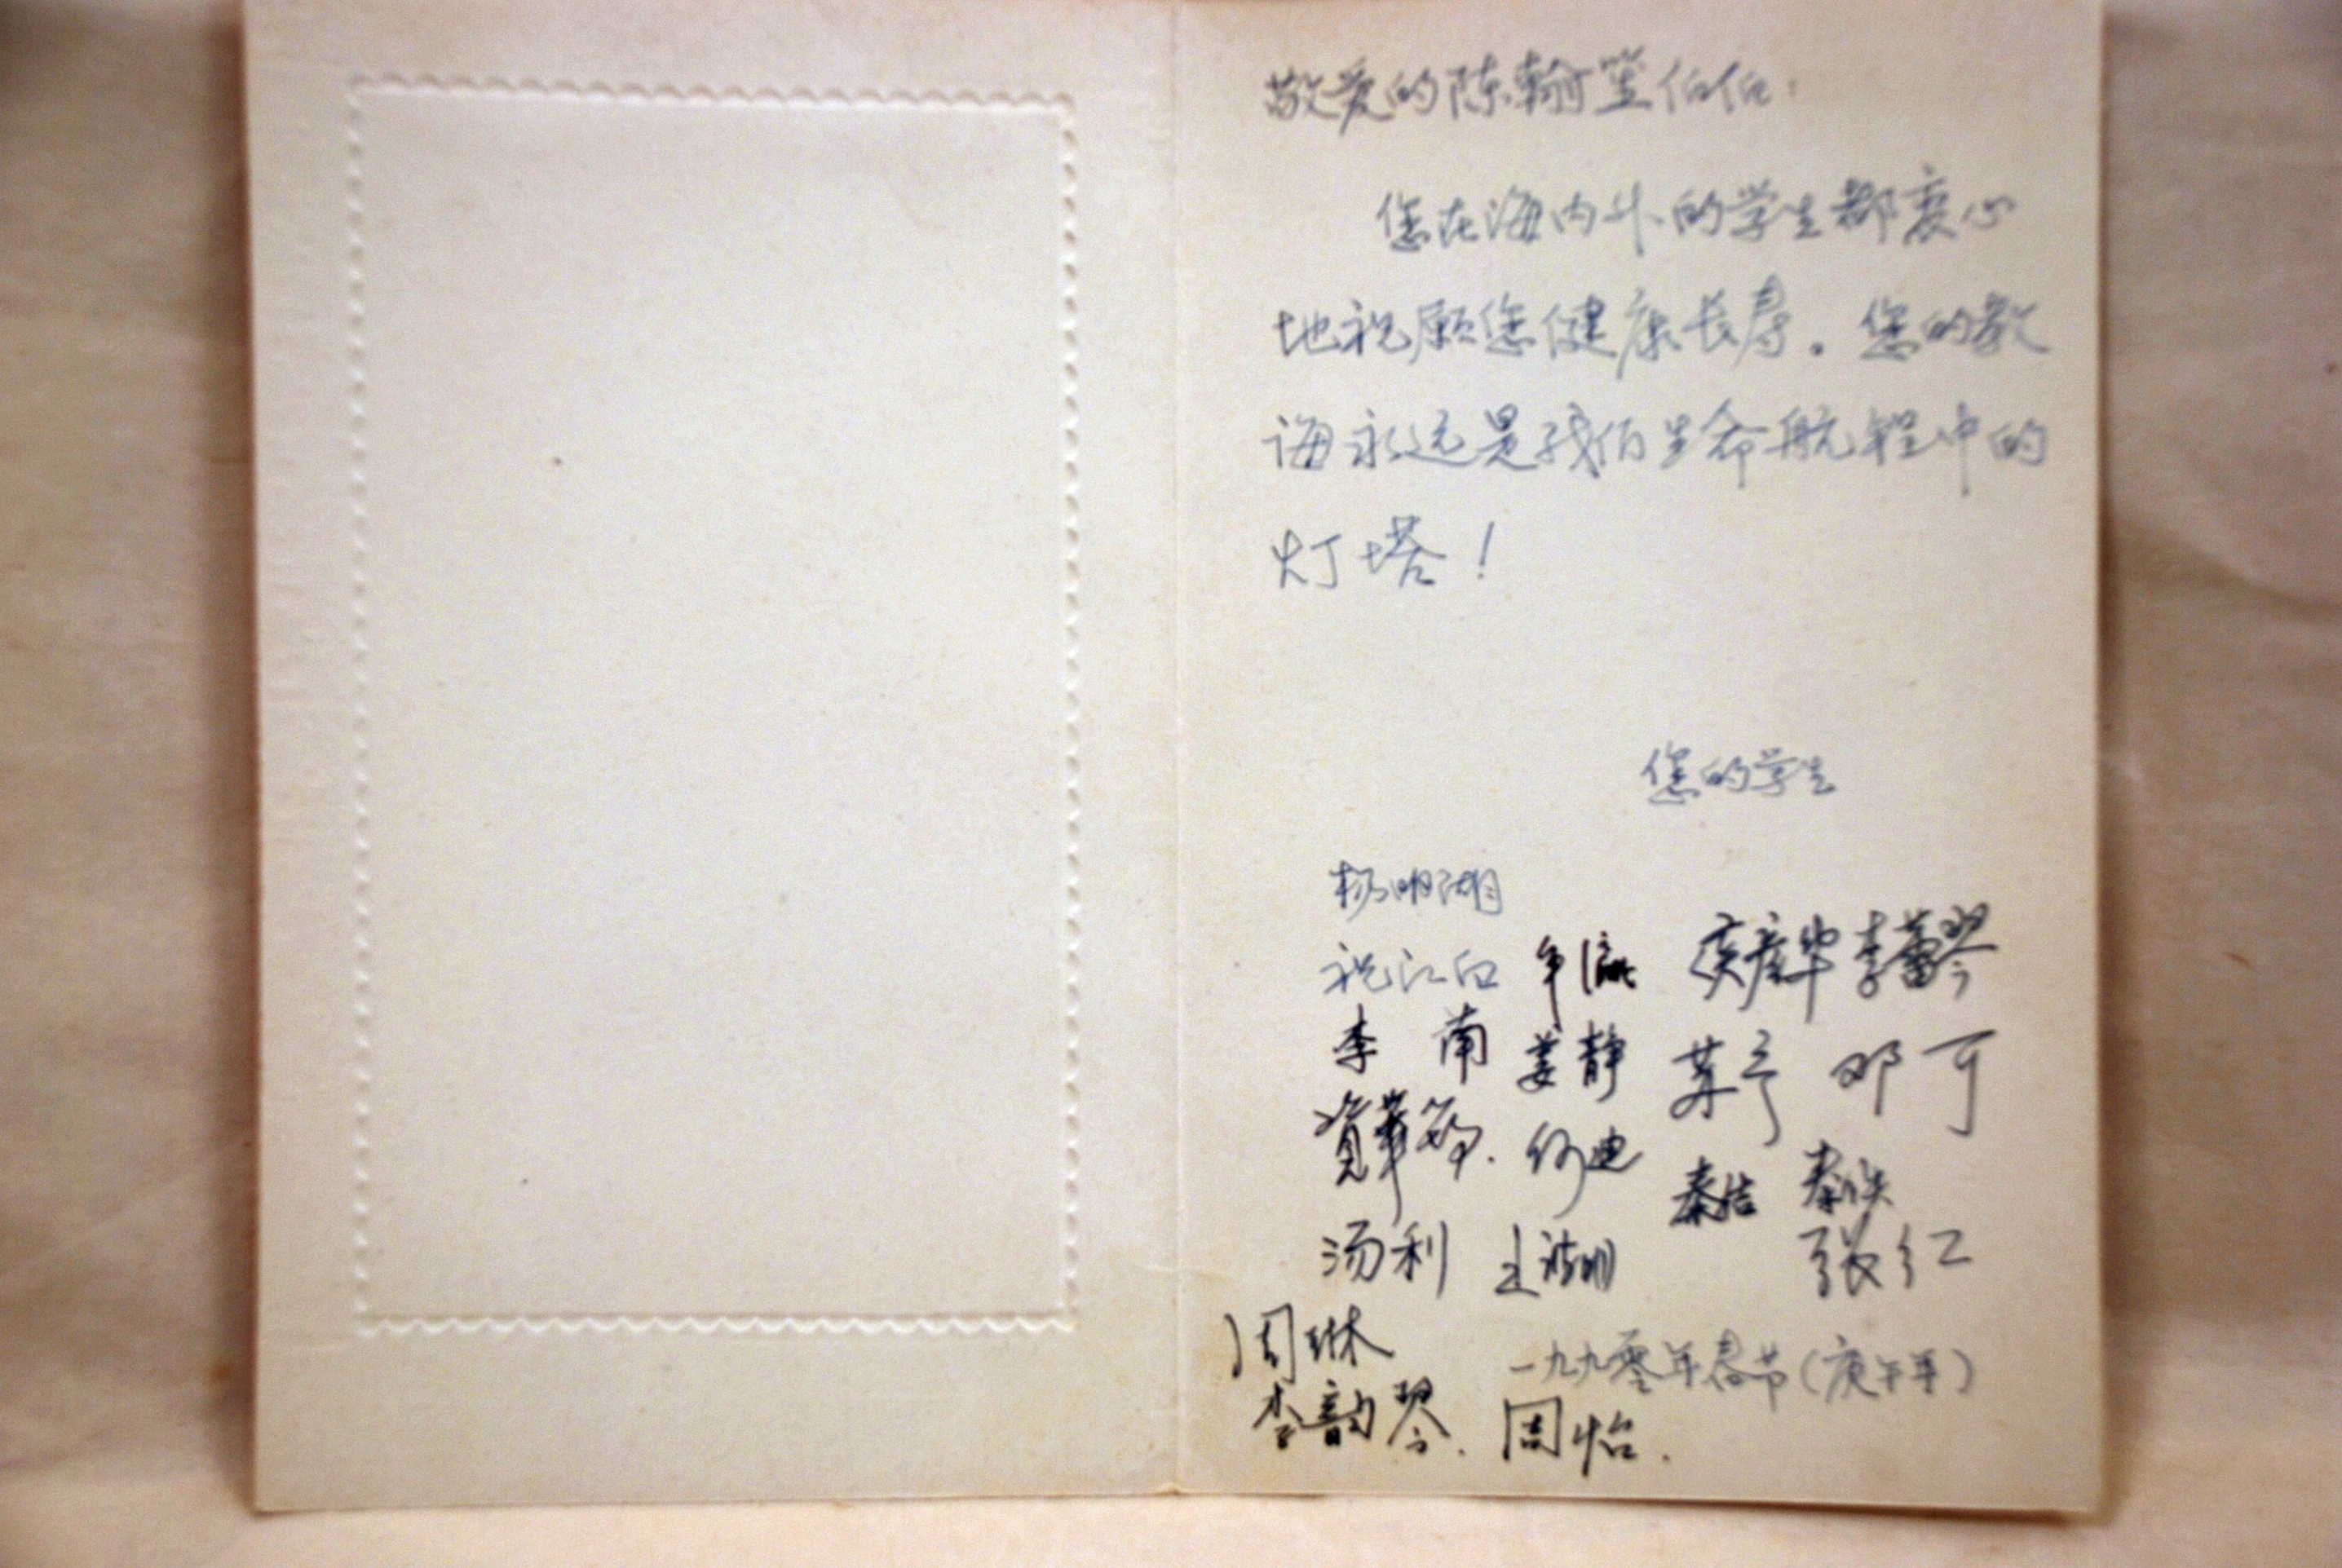 敬爱的陈翰笙伯伯：
您在海内外的学生都衷心
地祝愿您健康长寿。您的教
诲永远是我们生命航程中的
灯塔！
您的学生
杨明湖
祝江白 争流 李蕾琴
李南 姜静 苏予 邓可
資華筠. 何迪 秦
汤利 张红
周琳
一九九零年春节（庚午年）
李韵琴. 周怡.